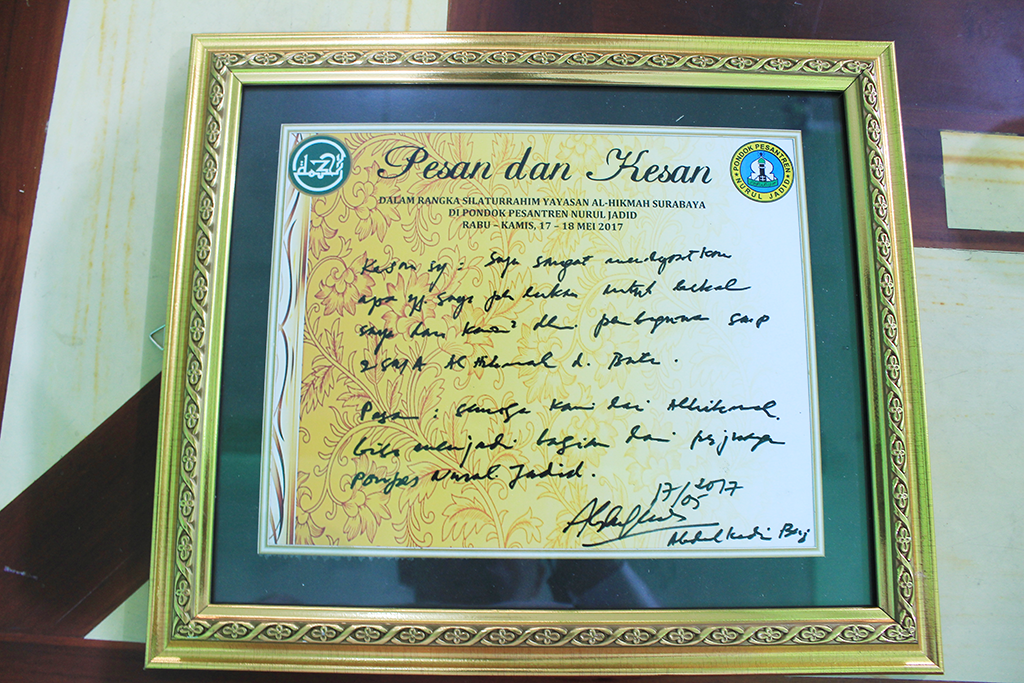 Pesan dan Kesan
DALAM RANGKA SILATURRAHIM YAYASAN AL-HIKMAH SURABAYA
DI PONDOK PESANTREN NURUL JADID
RABU – KAMIS, 17 – 18 MEI 2017
PONDOK PESANTREN
NURUL JADID
Kesan sy : Saya sangat mendapatkan
apa yg saya perlukan untuk bekal
saya dan kawan² dlm pembangunan SMP
2 SMA Al Hikmah di Batu.
Pesan : Semoga kami dari Alhikmah
bisa menjadi bagian dari perjuangan
Ponpes Nurul Jadid.
17/05 2017
Abdul Kadir